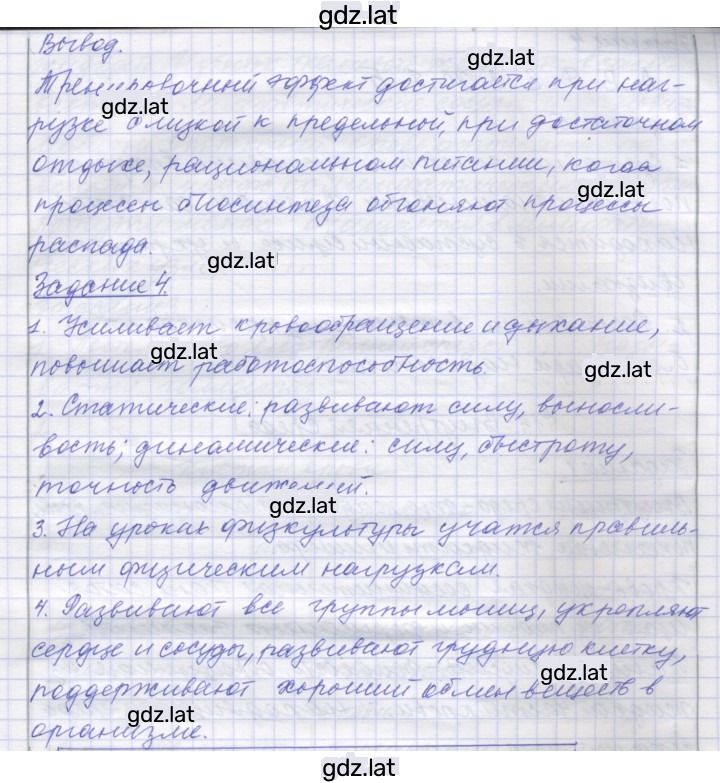 gdz.lat
Вывод.
gdz.lat
Тренировочный эффект достигается при наг-
gdz.lat
рузке близкой к предельной, при достаточном
отдыхе, рациональном питании, когда
gdz.lat
процессы биосинтеза обгоняют процессы
распада.
gdz.lat
Задание 4.
1. Усиливает кровообращение и дыхание,
gdz.lat
повышает работоспособность.
gdz.lat
2. Статические: развивают силу, выносли-
вость; динамические: силу, быстроту,
точность движений.
gdz.lat
3. На уроках физкультуры учатся правиль-
ным физическим нагрузкам.
4. Развивают все группы мышц, укрепляют
сердце и сосуды, развивают грудную клетку,
gdz.lat
поддерживают хороший обмен веществ в
gdz.lat
организме.
gdz.lat